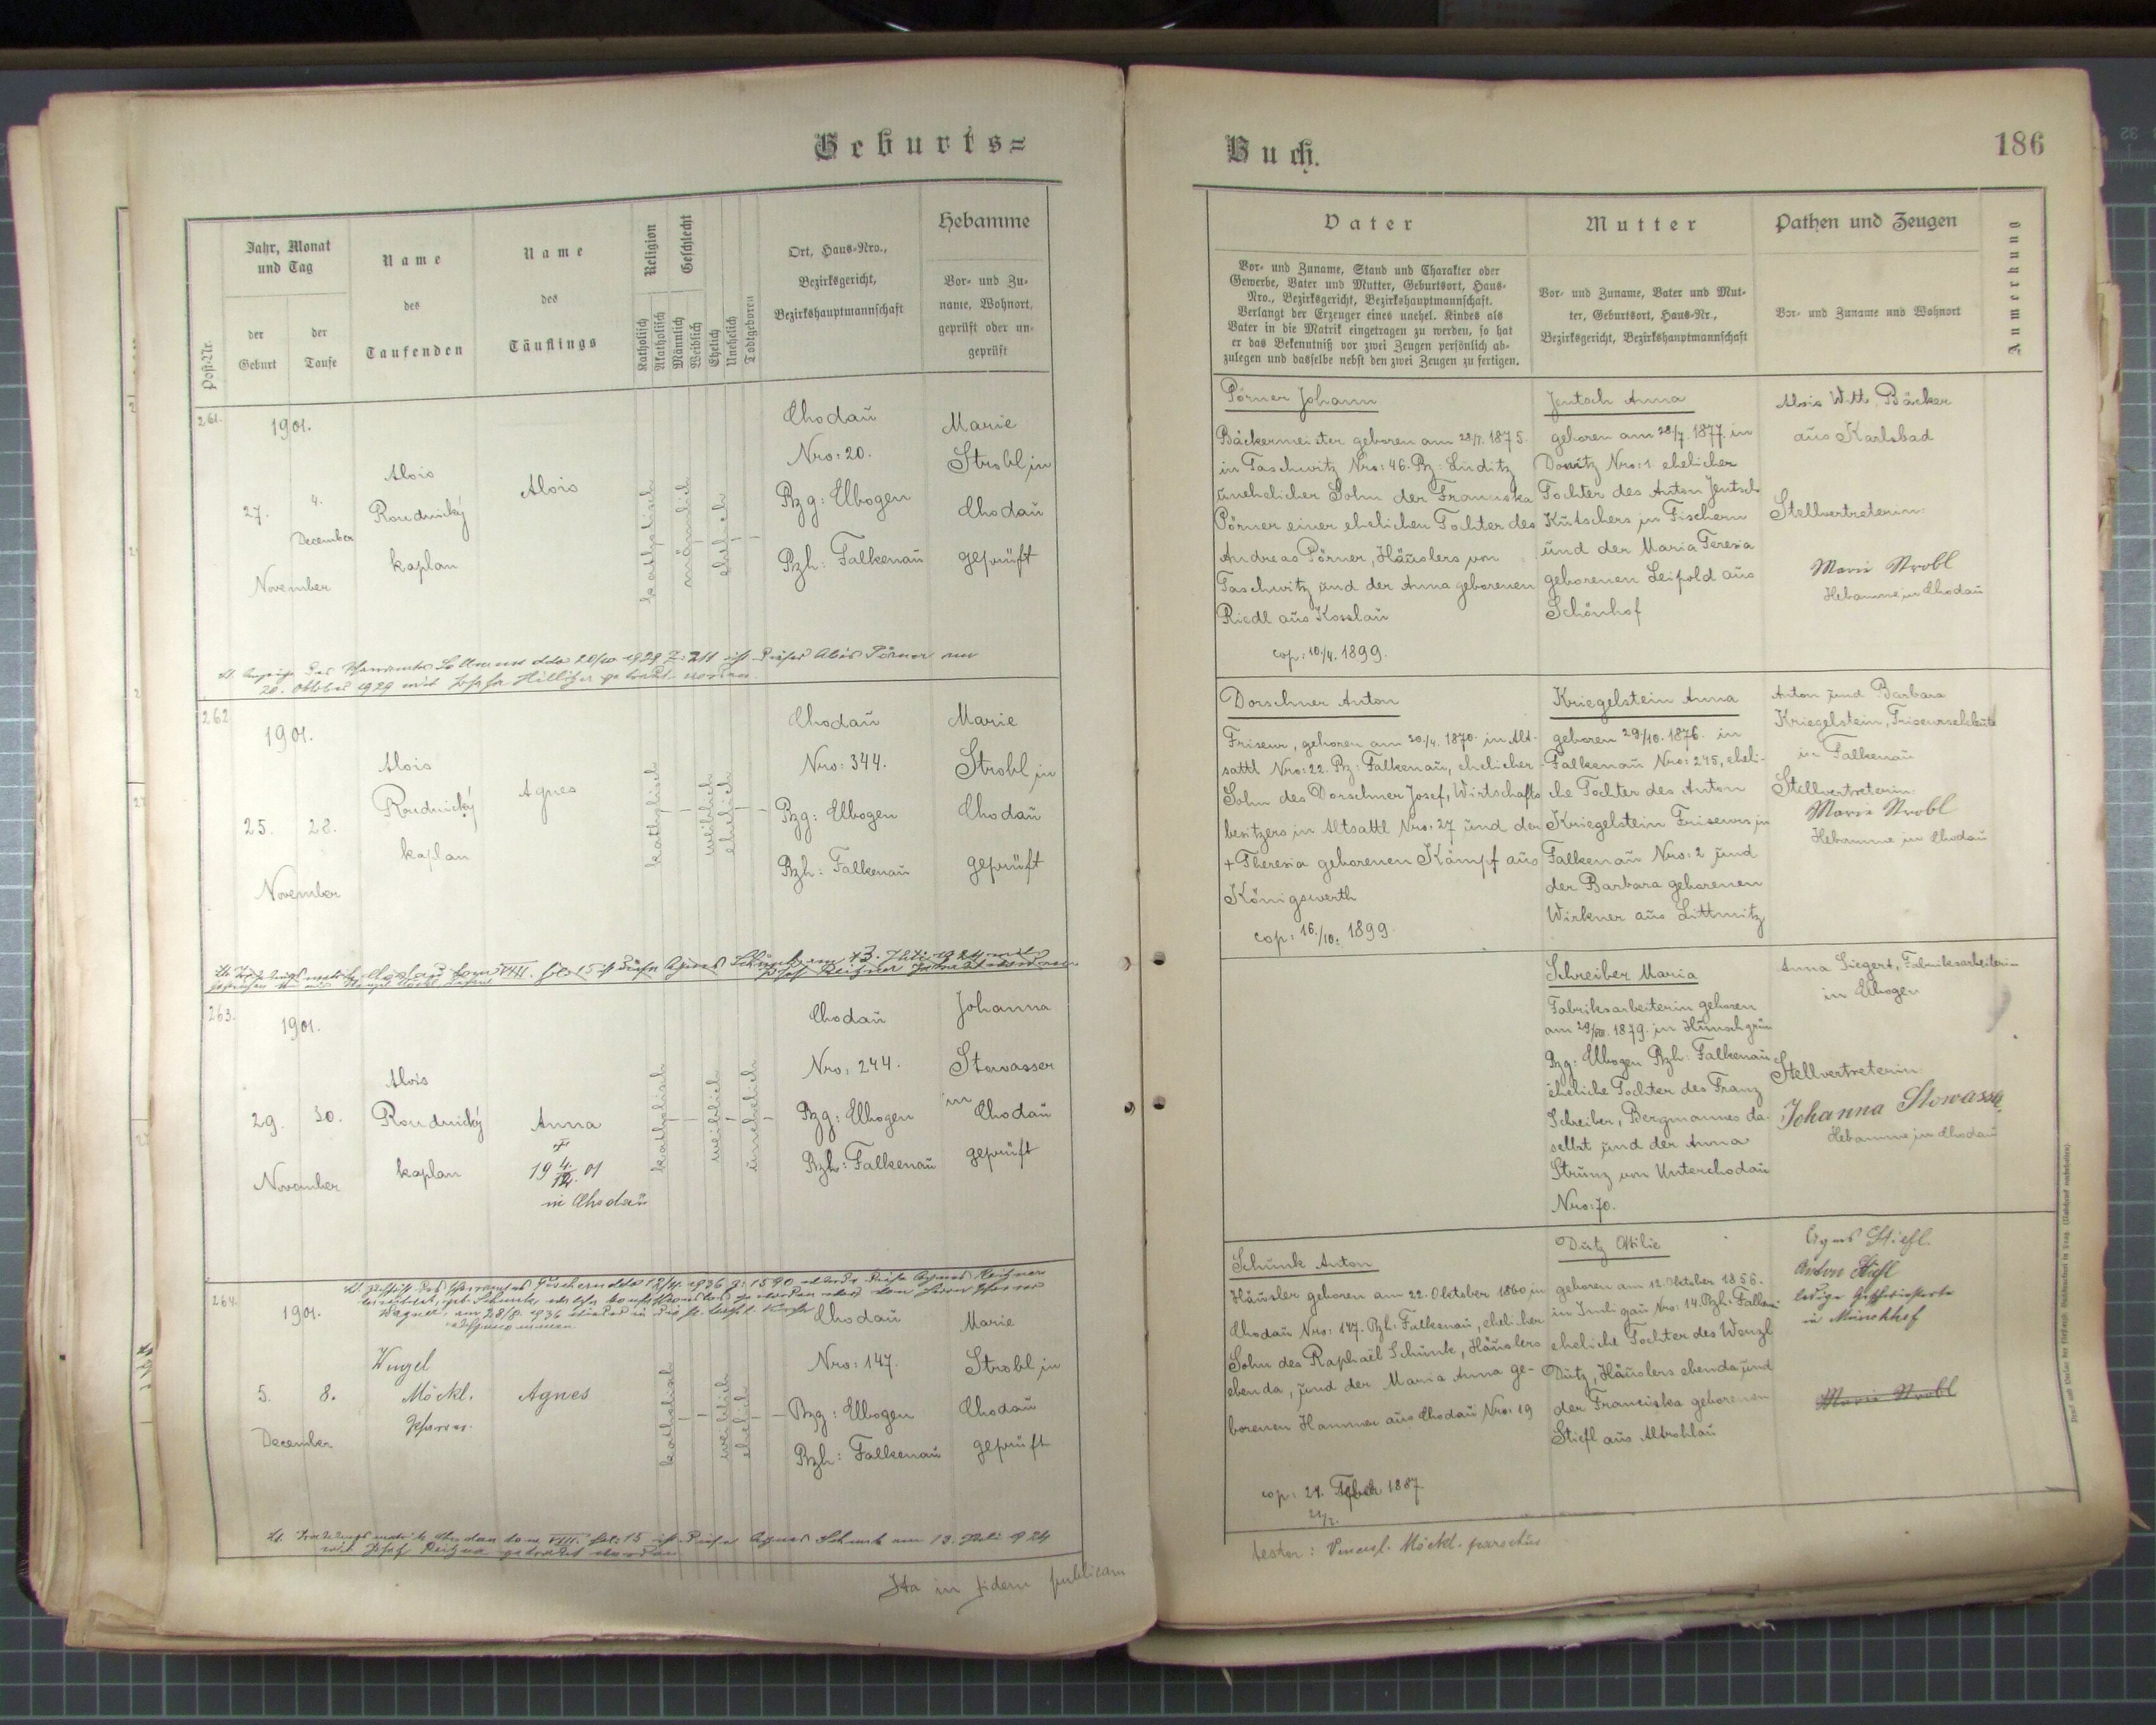 Geburts=
Buch.
186
Post-Nr.
Jahr, Monat
und Tag
der
Geburt
der
Taufe
Name
des
Taufenden
Name
des
Täuflings
Religion
Katholisch
Akatholisch
Geschlecht
Männlich
Weiblich
Ehelich
Unehelich
Todtgeboren
Ort, Haus-Nro.,
Bezirksgericht,
Bezirkshauptmannschaft
Hebamme
Vor- und Zu-
name, Wohnort,
geprüft oder un-
geprüft
Vater
Vor- und Zuname, Stand und Charakter oder
Gewerbe, Vater und Mutter, Geburtsort, Haus-
Nro., Bezirksgericht, Bezirkshauptmannschaft.
Verlangt der Erzeuger eines unehel. Kindes als
Vater in die Matrik eingetragen zu werden, so hat
er das Bekenntniß vor zwei Zeugen persönlich ab-
zulegen und dasselbe nebst den zwei Zeugen zu fertigen.
Mutter
Vor- und Zuname, Vater und Mut-
ter, Geburtsort, Haus-Nr.,
Bezirksgericht, Bezirkshauptmannschaft
Pathen und Zeugen
Vor- und Zuname und Wohnort
Anmerkung
261.
1901.
27.
4.
December
November
Alois
Roudnický
kaplan
Alois
katholisch
männlich
ehelich
Chodau
Nro: 20.
Bzg: Elbogen
Bzh: Falkenau
Marie
Strobl in
Chodau
geprüft
Pörner Johann
Bäckermeister geboren am 28/7. 1875.
in Taschwitz Nro: 46. Bz: Luditz
unehelicher Sohn der Franciska
Pörner einer ehelichen Tochter des
Andreas Pörner, Häuslers von
Taschwitz und der Anna geborenen
Riedl aus Kosslau
cop: 10/4. 1899.
Jentsch Anna
geboren am 28/7. 1877. in
Donitz Nro: 1. ehelicher
Tochter des Anton Jentsch
Kutschers in Fischern
und der Maria Teresia
geborenen Leipold aus
Schönhof
Alois Witt, Bäcker
aus Karlsbad
Stellvertreterin:
Marie Strobl
Hebamme in Chodau
20. Oktober 1929 mit
262
1901.
25.
28.
November
Alois
Roudnický
kaplan
Agnes
katholisch
weiblich
ehelich
Chodau
Nro: 344.
Bzg: Elbogen
Bzh: Falkenau
Marie
Strobl in
Chodau
geprüft
Dorschner Anton
Friseur, geboren am 20/4. 1870. in Alt-
sattl Nro: 22. Bz: Falkenau, ehelicher
Sohn des Dorschner Josef, Wirtschafts
besitzers in Altsattl Nro: 27 und der
+ Theresia geborenen Kämpf aus
Königswerth
cop: 16./10. 1899.
Kriegelstein Anna
geboren 29/10. 1876. in
Falkenau Nro: 245, eheli-
che Tochter des Anton
Kriegelstein Friseurs in
Falkenau Nro: 2 und
der Barbara geborenen
Wirkner aus Littmitz
Anton und Barbara
Kriegelstein,
in Falkenau
Stellvertreterin:
Marie Strobl
Hebamme in Chodau
263.
1901.
29.
30.
November
Alois
Roudnický
kaplan
Anna
19 4./12. 01
in Chodau
katholisch
weiblich
unehelich
Chodau
Nro: 244.
Bzg: Elbogen
Bzh: Falkenau
Johanna
Stowasser
in Chodau
geprüft
Schreiber Maria
Fabriksarbeiterin geboren
1879. in Hunschgrün
Bzg: Elbogen Bzh: Falkenau
eheliche Tochter des Franz
Schreiber, Bergmannes da-
selbst und der Anna
Strunz von Unterchodau
Nro: 70.
Anna Siegert, Fabriksarbeiterin
in Elbogen
Stellvertreterin:
Johanna Stowasser
Hebamme in Chodau
264.
1901.
5.
8.
December
Wenzel
Möckl.
Pfarrer.
Agnes
katholisch
weiblich
ehelich
Chodau
Nro: 147.
Bzg: Elbogen
Bzh: Falkenau
Marie
Strobl in
Chodau
geprüft
Schunk Anton
Häusler geboren am 22. Oktober 1860 in
Chodau Nro: 147. Bzh: Falkenau, ehelicher
Sohn des Raphael Schunk, Häuslers
ebenda, und der Maria Anna ge-
borenen Hammer aus Chodau Nro: 19
cop: 21. 1887
21/2.
Dutz Ottilie
geboren am 12. Oktober 1856.
in Imligau Nro: 14. Bzh: Falkenau
eheliche Tochter des Wenzl
Dutz, Häuslers ebenda und
der Franciska geborenen
Stiefl aus Altrohlau
Agnes Stiefl.
Anton Stiefl
in Münchhof
Marie Strobl
Lt. Trauungsmatrik Chodau tom VIII. fol: 15 ist diese Agnes Schunk am 13. Juli 1924
mit Josef Reitzner getraut worden
Ita in fidem publicam
testor: Vencesl. Möckl. parochus